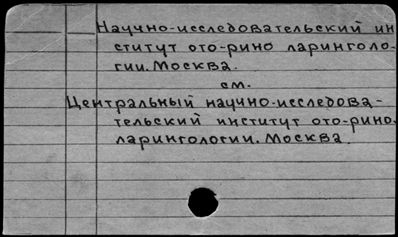 Научно-исследовательский ин
ститут ото-рино ларинголо-
гии. Москва.
см.
Центральный научно-исследова-
тельский институт ото-рино-
ларингологии. Москва.